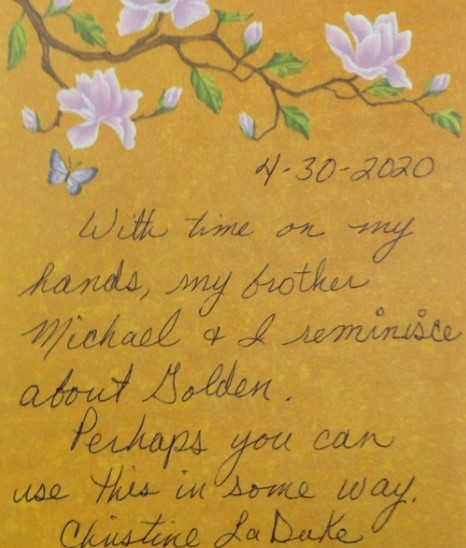 4-30-2020
With time on my
hands, my brother
Michael & I reminisce
about Golden.
Perhaps you can
use this in some way.
Christine LaDuke